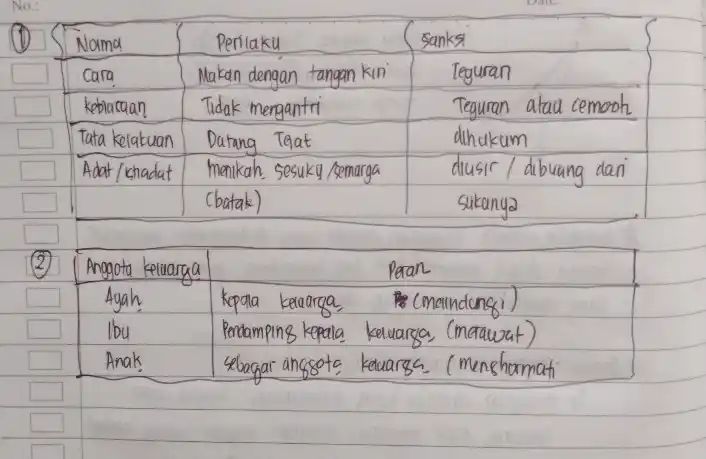 No.:
Date
① Norma Perilaku Sanksi
Cara Makan dengan tangan kiri Teguran
kebiasaan Tidak mengantri Teguran atau cemooh
Tata kelakuan Datang Telat dihukum
Adat / khadat menikah sesuku /semarga diusir / dibuang dari
(batak) sukunya
② Anggota keluarga Peran
Ayah kepala keluarga (melindungi)
Ibu Pendamping kepala keluarga (merawat)
Anak sebagai anggota keluarga (menghormati